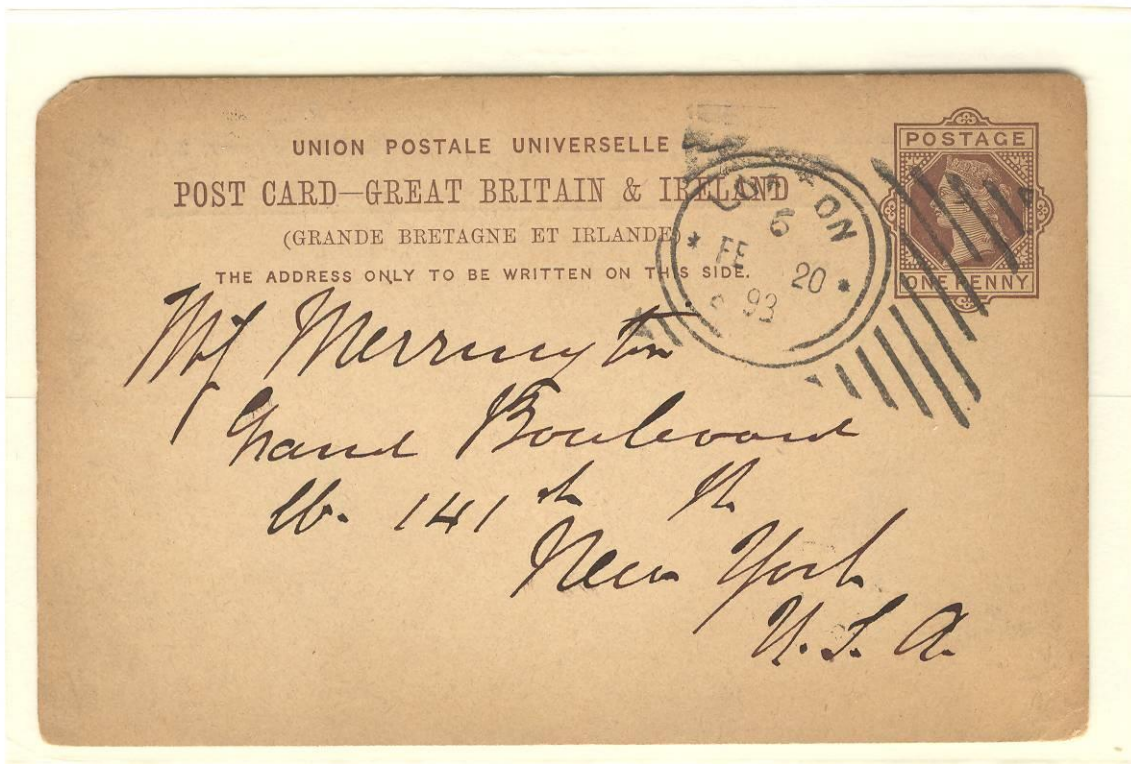 UNION POSTALE UNIVERSELLE
POST CARD—GREAT BRITAIN & IRELAND
(GRANDE BRETAGNE ET IRLANDE)
THE ADDRESS ONLY TO BE WRITTEN ON THIS SIDE.
POSTAGE
ONE PENNY
6
FE 20
93
Merrington
Grand Boulevard
W. 141st St.
New York
U.S.A.